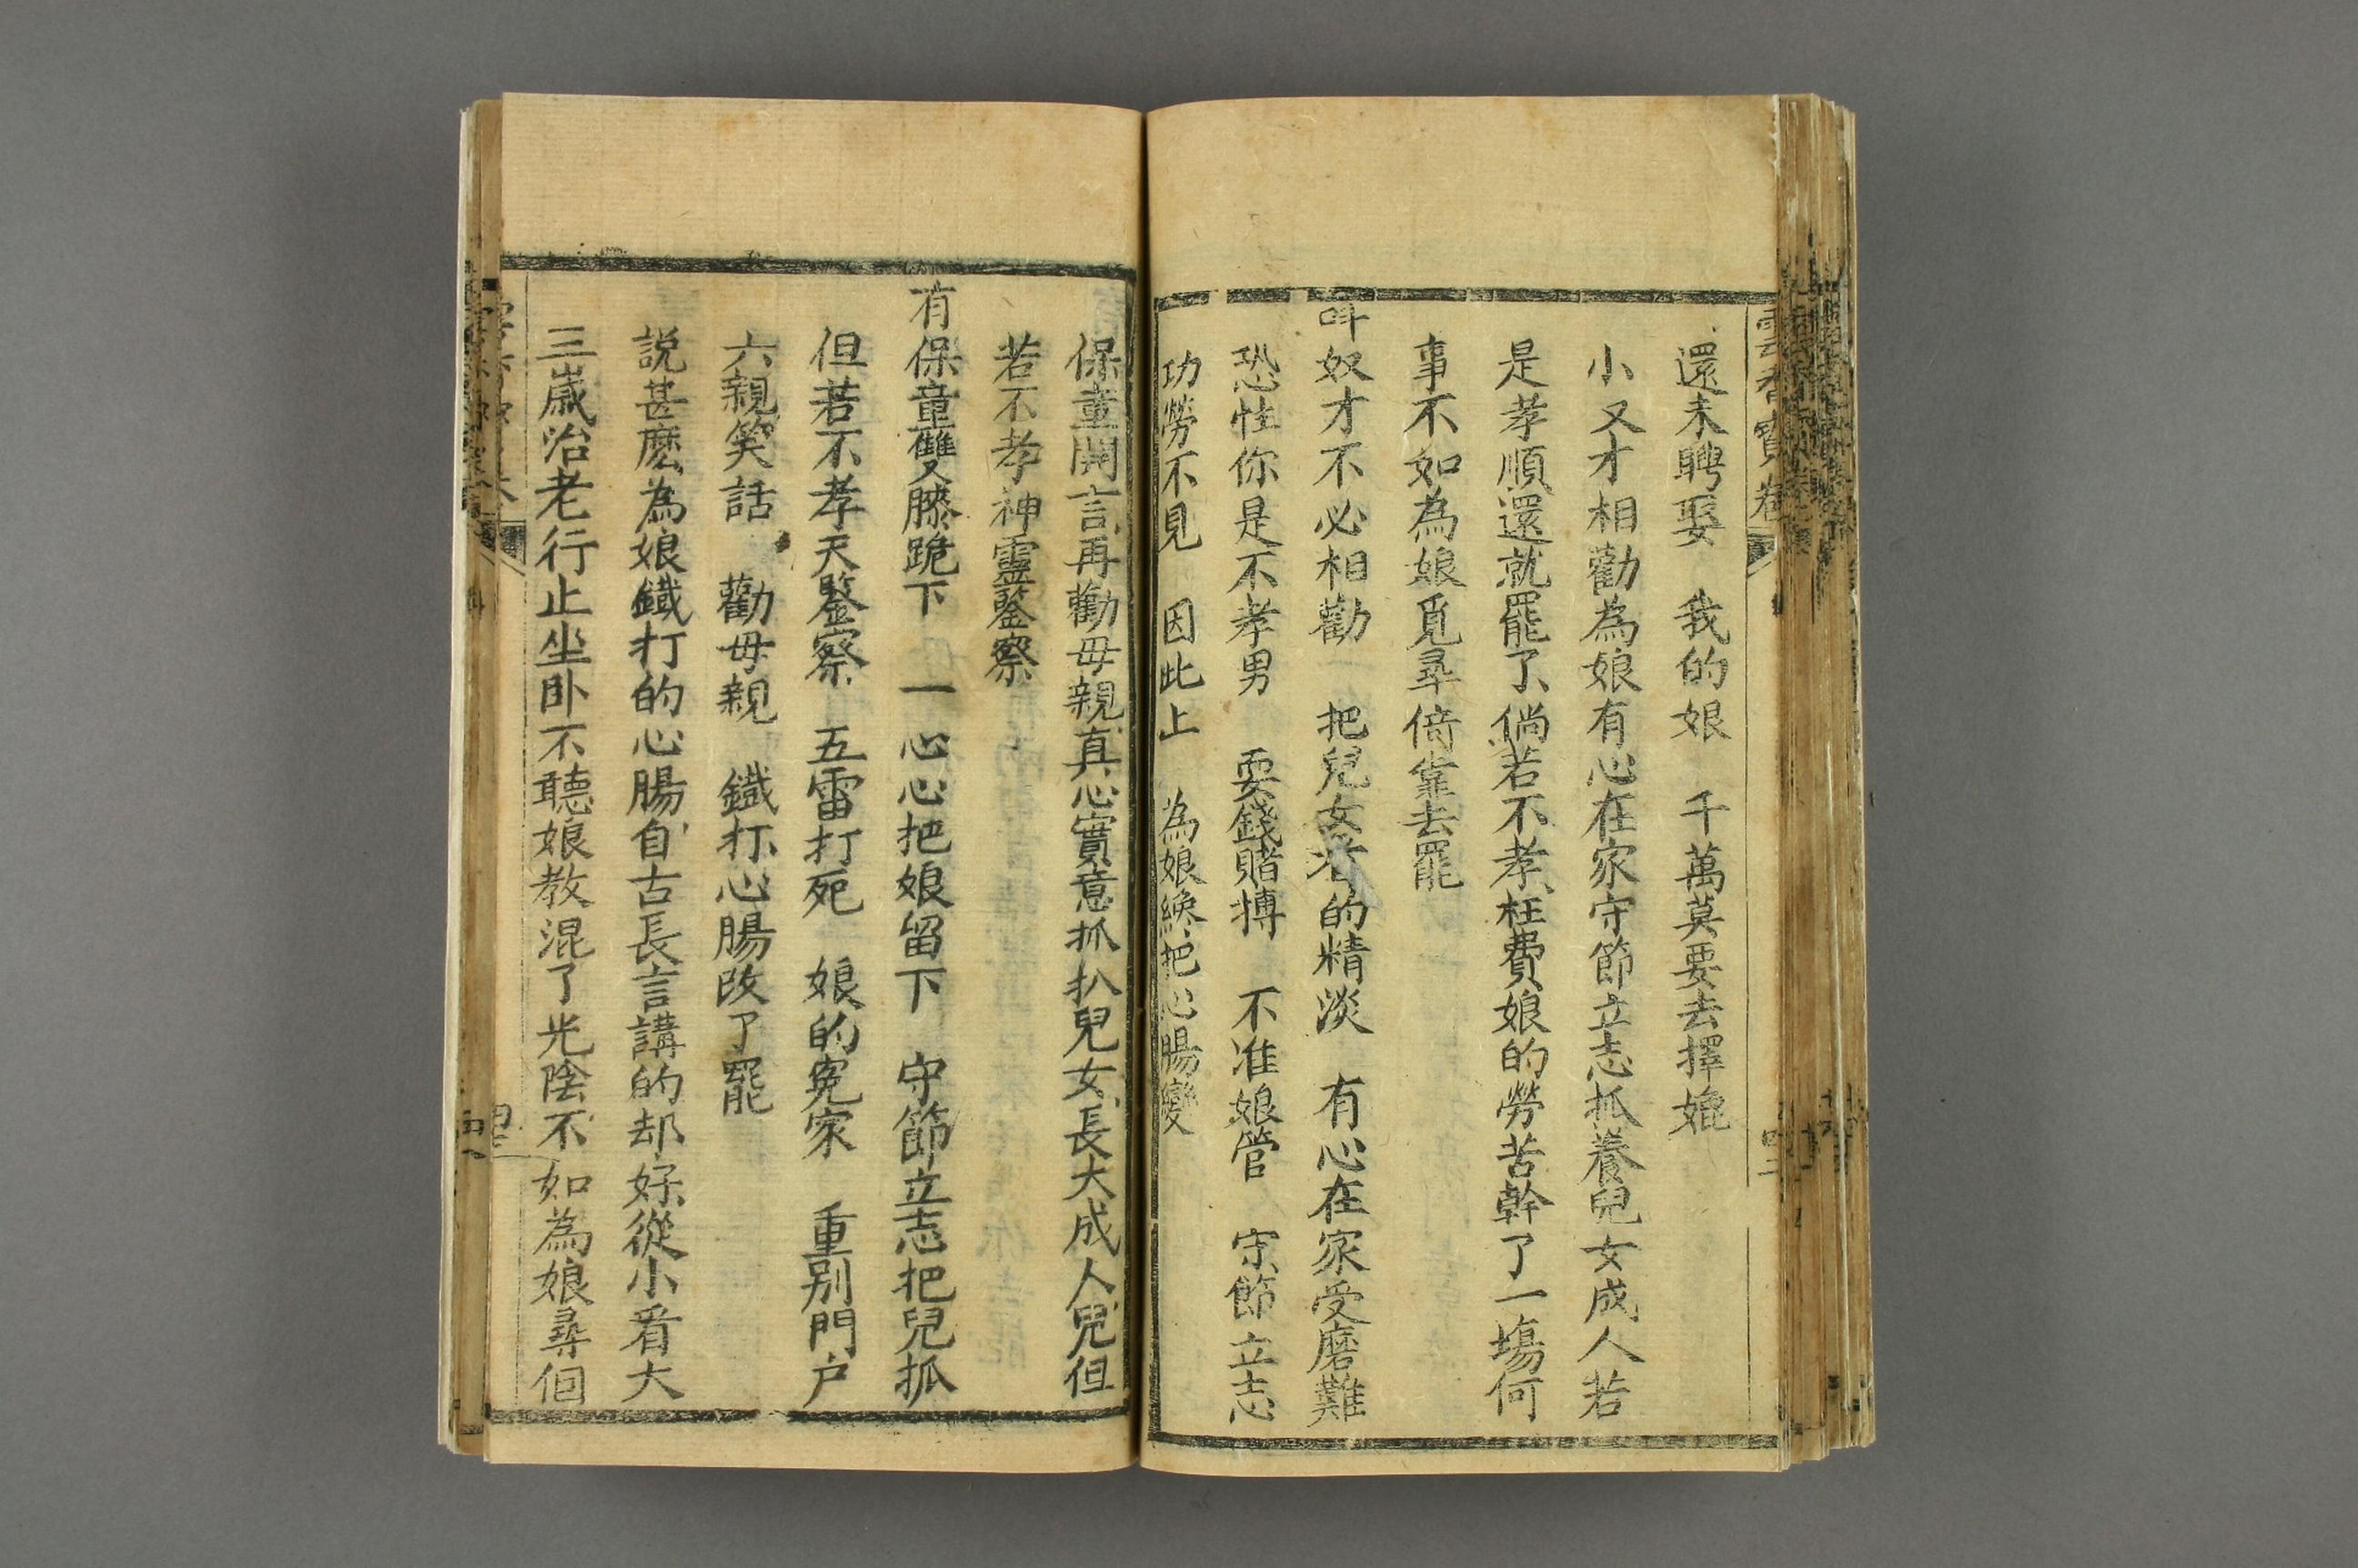 雲香寶卷
還未聘娶 我的娘 千萬莫要去擇婫
小又才相勸為娘有心在家守節立志抓養兒女成人若
是孝順還就罷了倘若不孝枉費娘的勞苦幹了一塲何
事不如為娘覓尋倚靠去罷
呌奴才不必相勸 把兒女 的精淡 有心在家受磨難
恐怕你是不孝男 耍錢賭摶 不准娘管 守節立志
功勞不見 因此上 為娘纔把心腸變
保童開言再勸母親真心實意抓扒兒女長大成人兒但
若不孝神靈鑒察
有保童雙膝跪下 一心心把娘留下 守節立志把兒抓
但若不孝天鑒察 五雷打死 娘的寃家 重别門户
六親笑話 勸母親 鐵打心腸改了罷
説甚麽為娘鐵打的心腸自古長言講的却好從小看大
三歲治老行止坐卧不聽娘教混了光陰不如為娘尋個